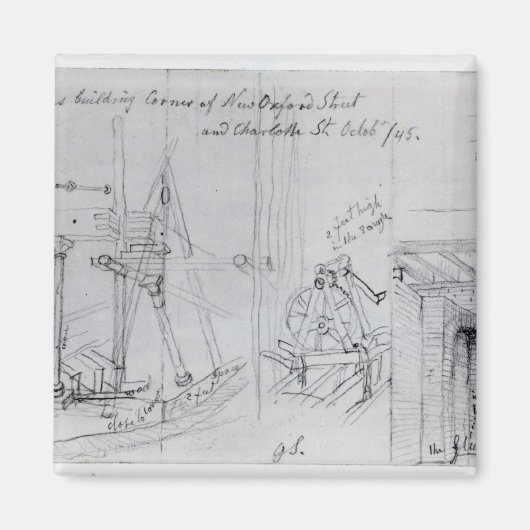 s building Corner of New Oxford Street
and Charlotte St. Octobr /45.
2 feet high
in the rough
iron
wood
close to
2 feet
G S.
the